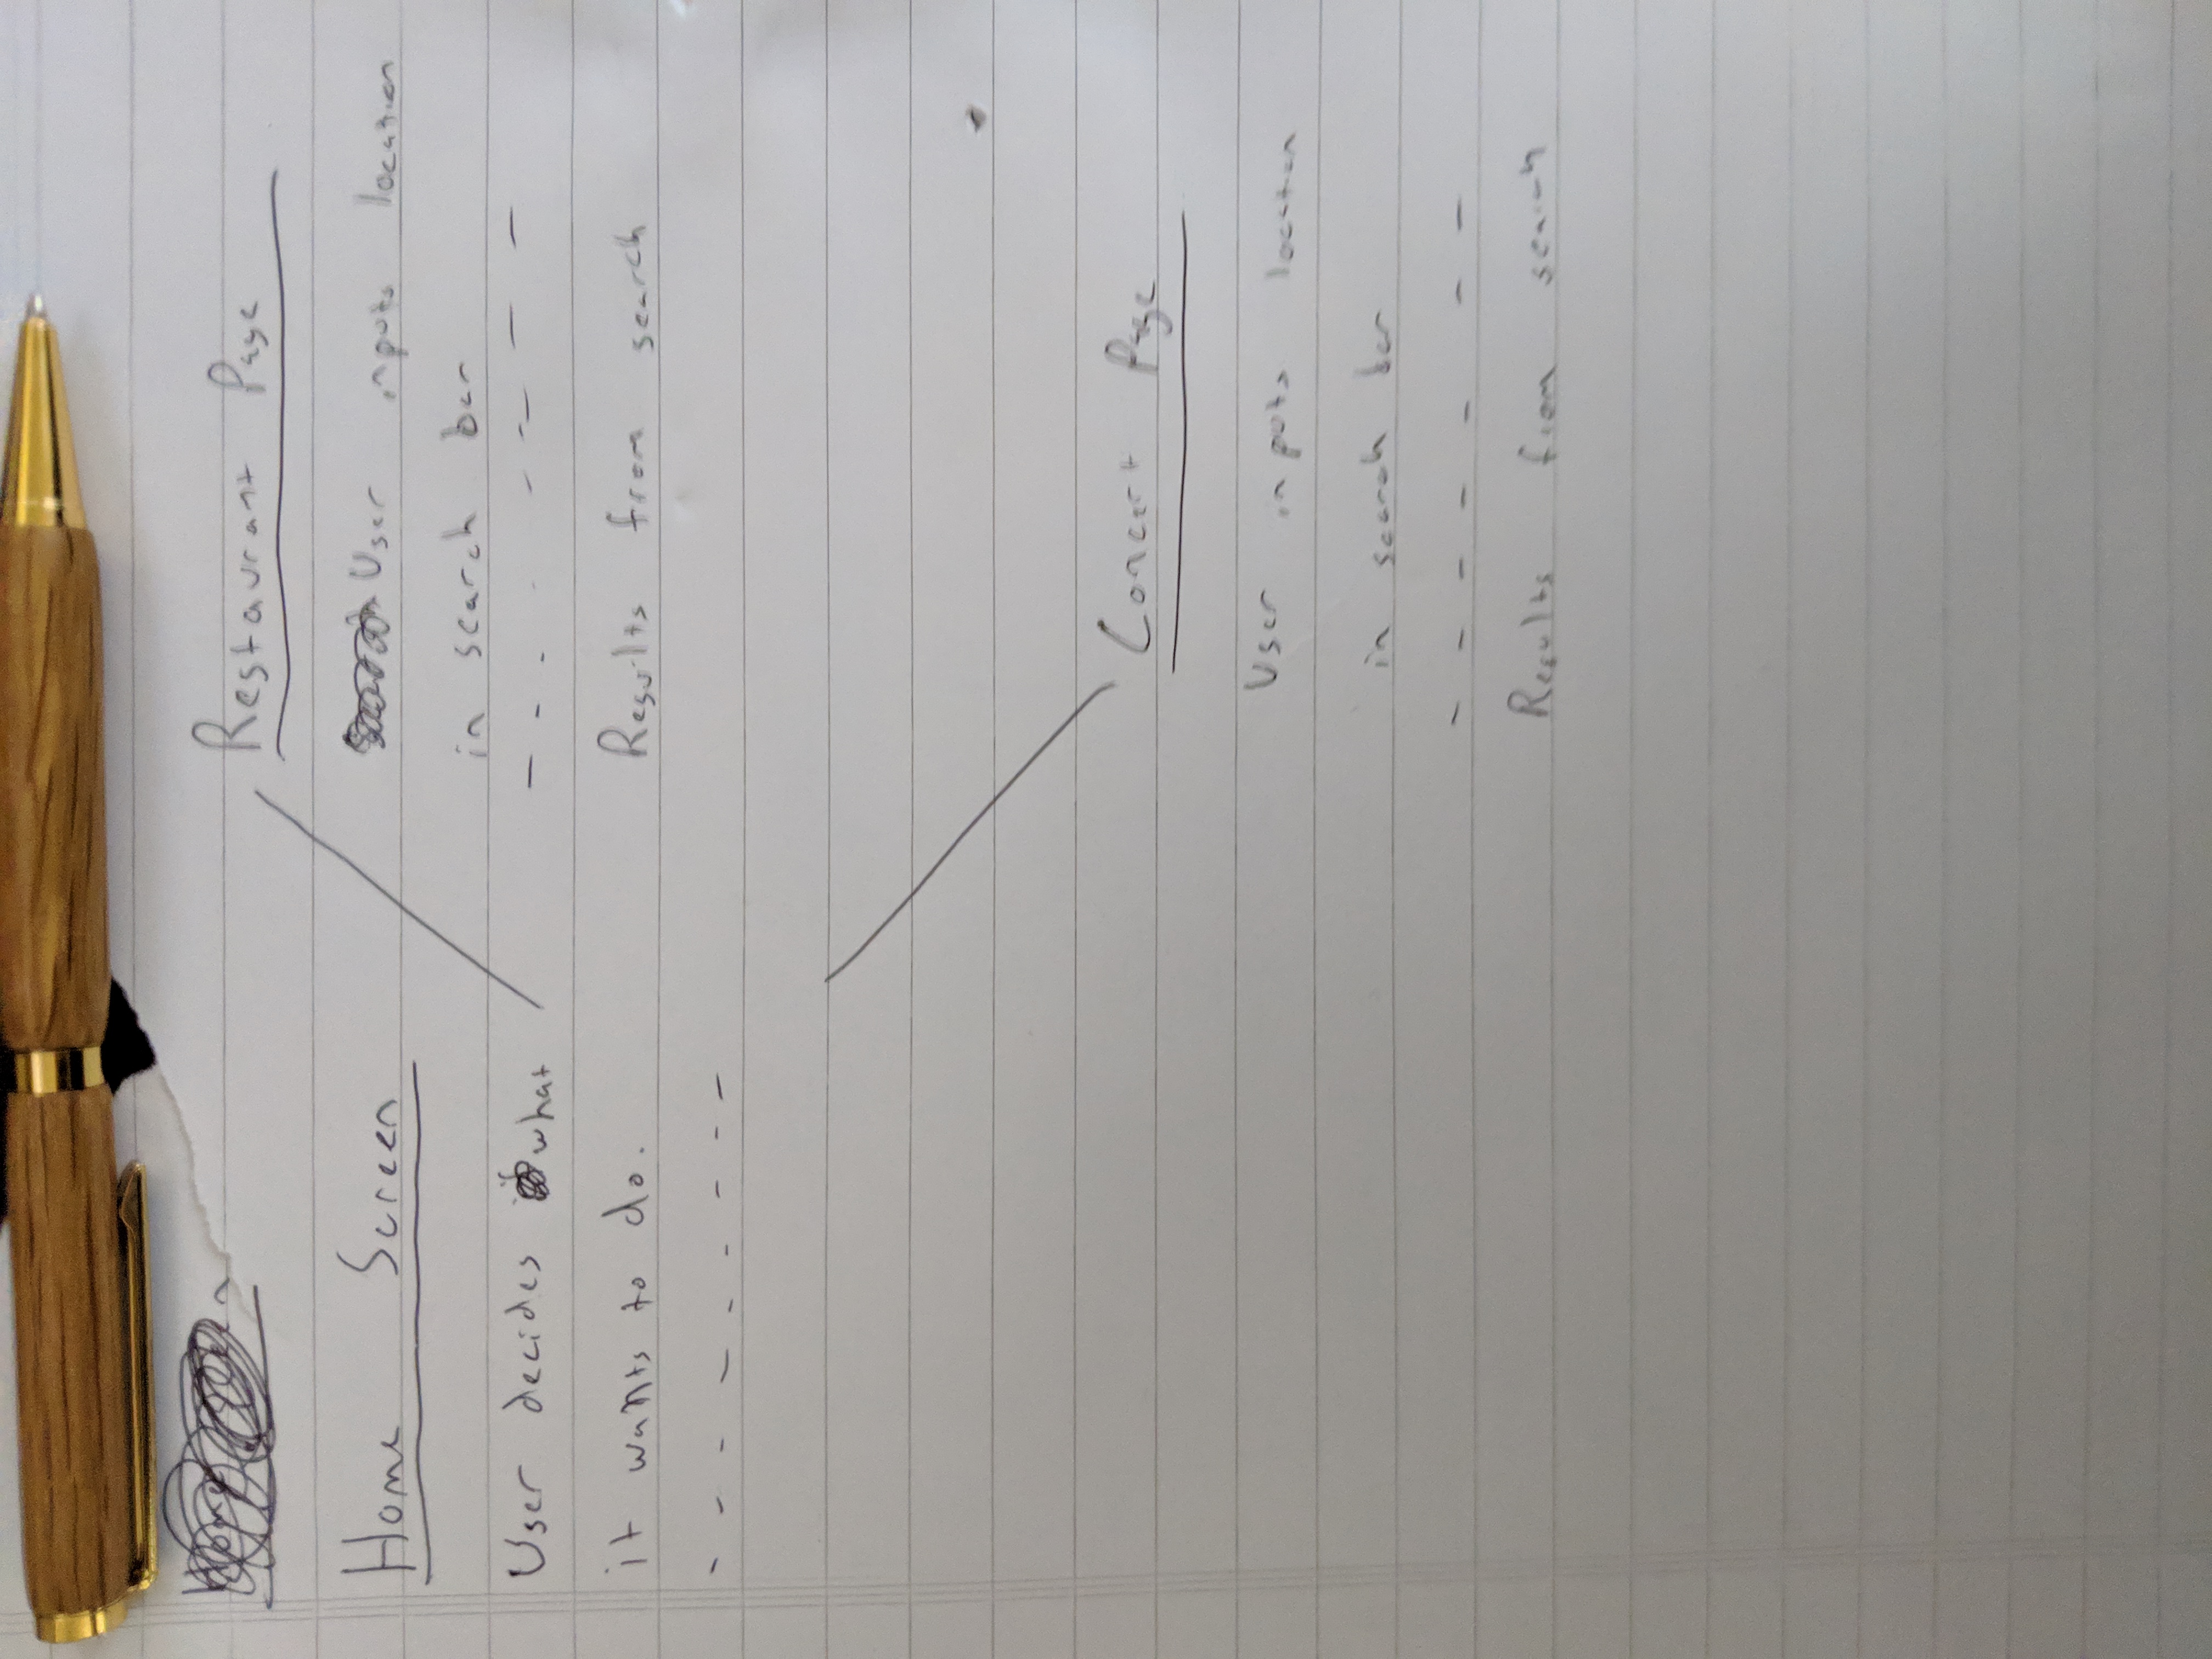 Home Screen
User decides what
it wants to do.
Restaurant Page
User inputs location
in search bar
Results from search
Concert Page
User inputs location
in search bar
Results from search